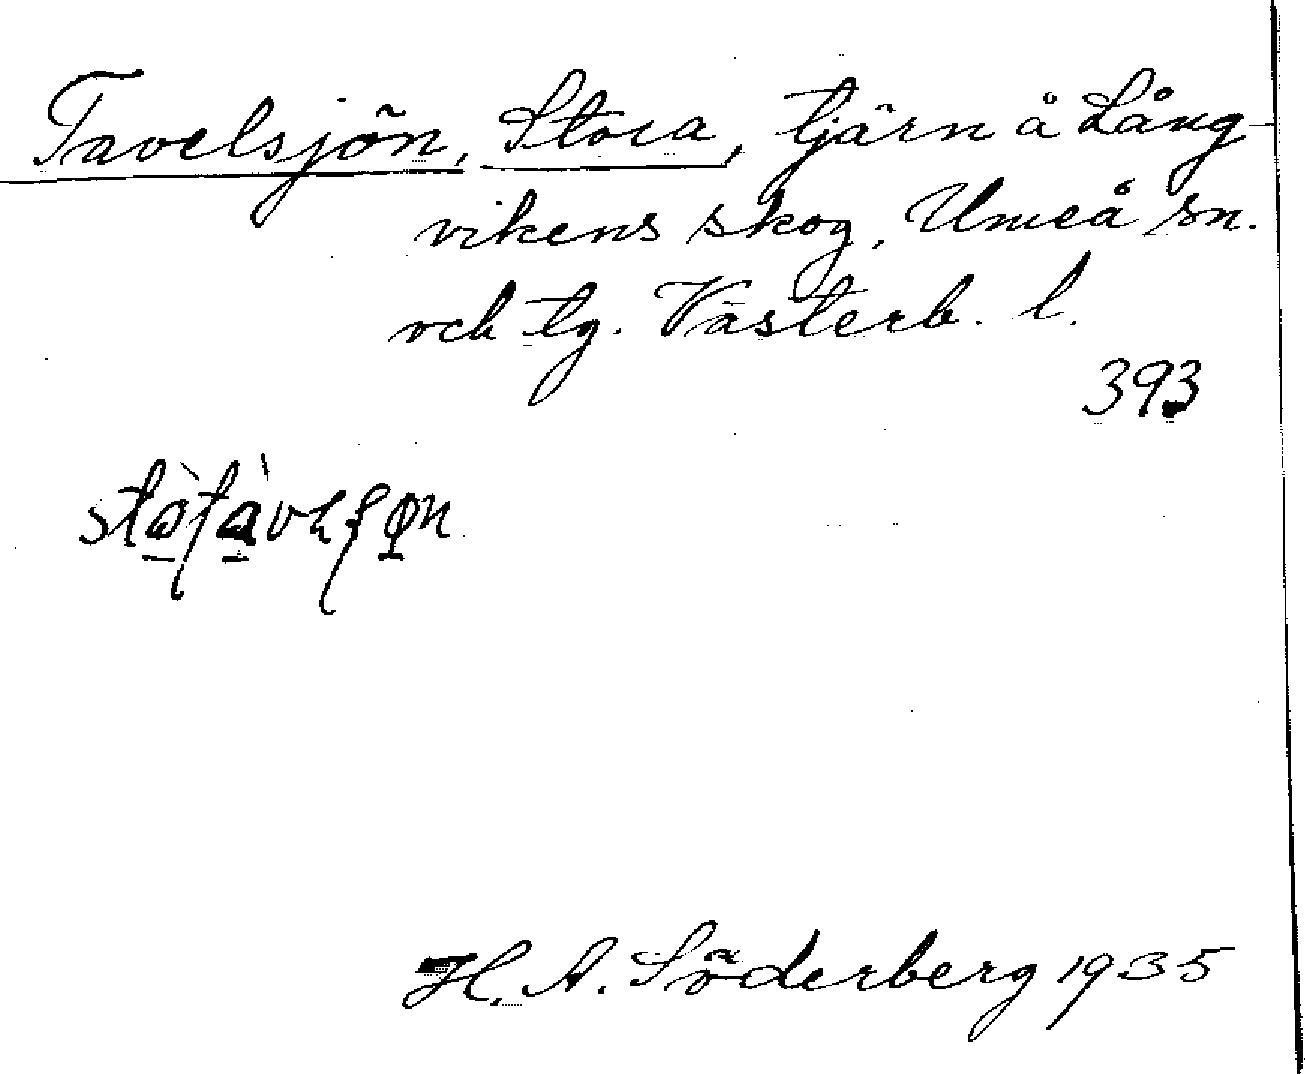 Tavelsjön, Stora, tjärn å Lång-
vikens skog, Umeå sn.
och tg. Västerb. l.
393
H. A. Söderberg 1935